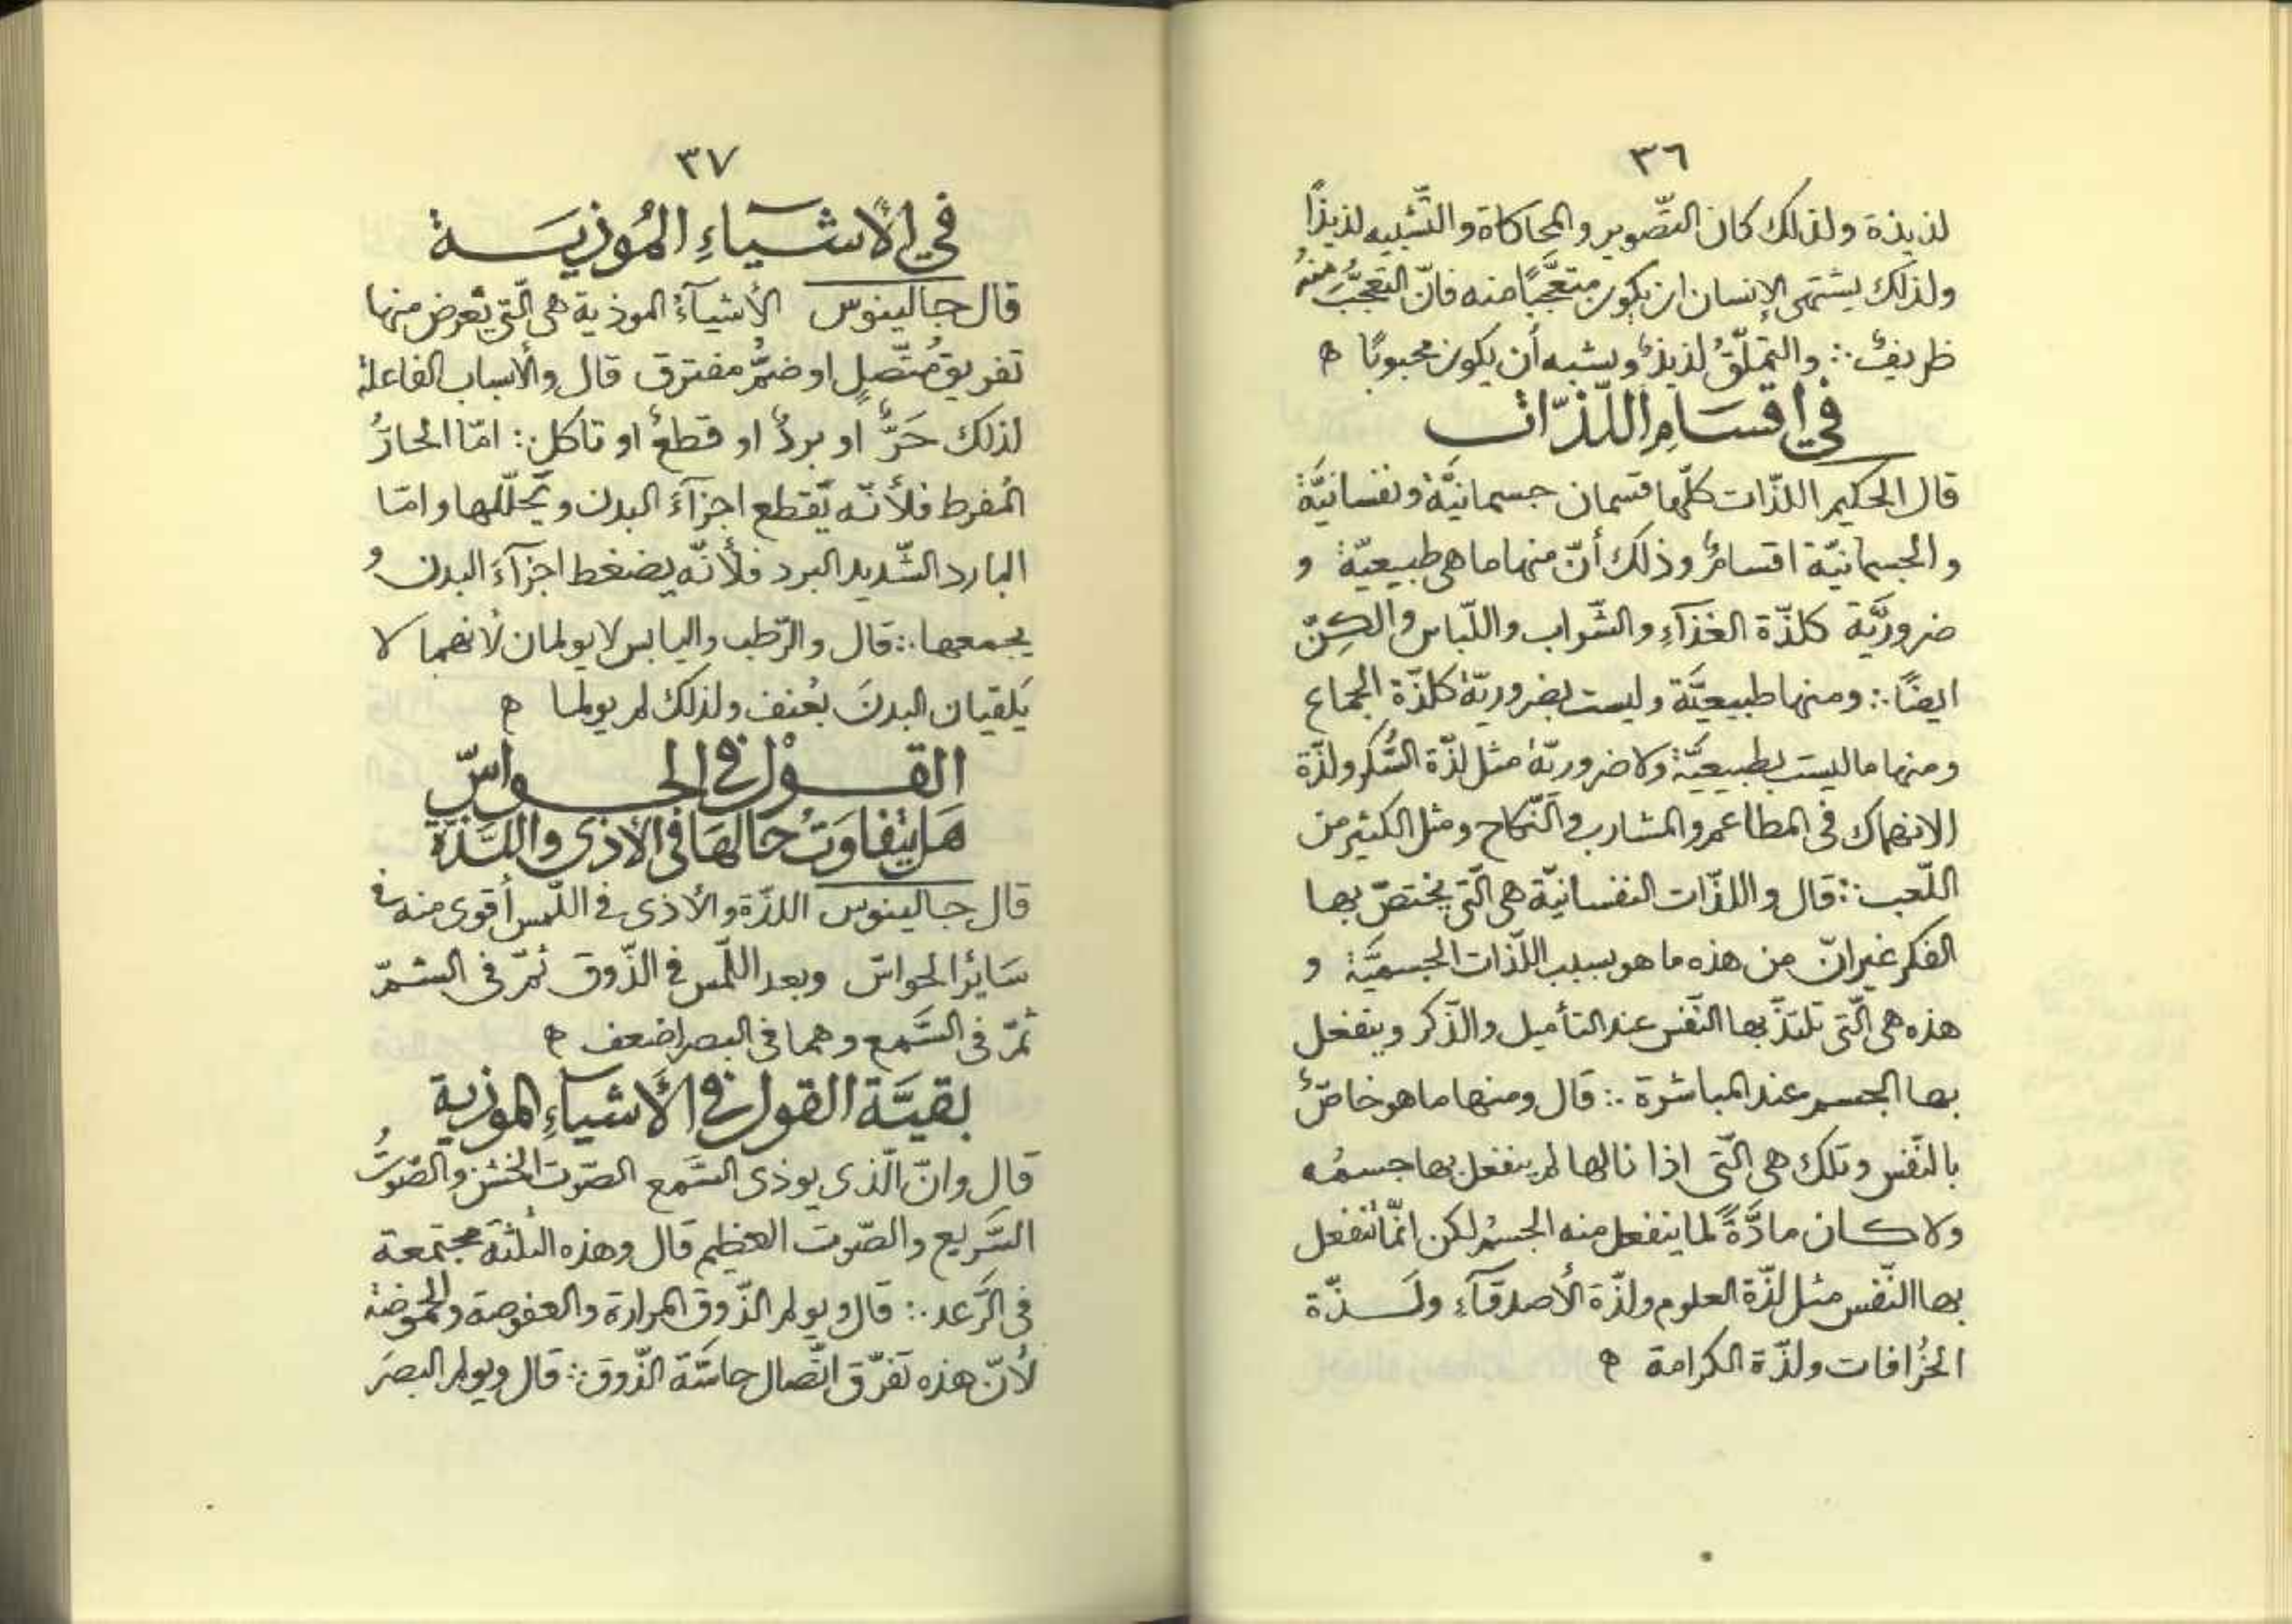 ٣٦
لذيذة ولذلك كان التّصوير والمحاكاة والتّشبيه لذيذًا
ولذلك يشتهى الإنسان ان يكون متعجَّبًا منه فانّ التعجُّبَ منهُ
ظريفٌ ∴ والتملّقُ لذيذٌ ويشبه أن يكون محبوبًا ه
في اقسَامِ اللّذّات
قال الحكيم اللذّات كلّها قسمان جسمانيَّةٌ ونفسانيَّةٌ
والجسمانيّة اقسامٌ وذلك أنّ منها ما هى طبيعيّةٌ و
ضروريَّة كلذّة الغذآءِ والشّراب واللّباس والكِنّ
ايضًا ∴ ومنها طبيعيَّة وليست بضروريّة كلذّة الجماع
ومنها ما ليسَت بطبيعيَّة ولا ضروريّة مثل لذّة السُّكر ولذّة
الانهماك فى المطاعم والمشارب والنّكاح ومثل الكثير من
اللّعب ∴ قال واللذّات النفسانيّة هى الّتى يختصّ بها
الفكر غير انّ من هذه ما هو بسبب اللّذات الجسميَّة و
هذه هى الّتى تلتذّ بها النّفس عند التأميل والذّكر وينفعل
بها الجسم عند المباشرة ∴ قال ومنها ما هو خاصٌّ
بالنّفس وتلك هى الّتى اذا نالها لم ينفعل بها جسمُه
ولا كان مادَّةً لما ينفعل منه الجسمُ لكن انّما تنفعل
بها النّفس مثل لذّة العلوم ولذّة الأصدقآءِ ولذّة
الخُرافات ولذّة الكرامة ه
٣٧
في الأشيآءِ المُوذيَة
قال جالينوس الأشيآءُ الموذية هى الّتى تعرض منها
تفريق مُتّصلٍ او ضمُّ مفترق قال والأسباب الفاعلة
لذلك حَرٌّ او بردٌ او قطعٌ او تاكل ∴ امّا الحارّ
المُفرط فلأنّه يُقطع اجزآءَ البدن ويُحلّلها وامّا
البارد الشّديد البرد فلأنّه يضغط اجزآءَ البدن و
يجمعها ∴ قال والرّطب واليابس لا يولمان لأنهما لا
يَلقيان البدنَ بعُنف ولذلك لم يولما ه
القوْل فى الحواسّ
هَل يتفاوَتُ حالهَا فى الأذى واللذّة
قال جالينوس اللذّة والأذى فى اللّمس أقوى منه فى
سَايُر الحواسّ وبعد اللّمس فى الذّوق ثمّ فى الشمّ
ثمّ فى السَّمع وهما فى البصر اضعف ه
بقيَّة القول فى الأشيآءِ الموذية
قال وانّ الّذى يوذى السَّمع الصّوت الخشن والصّوتُ
السَّريع والصّوت العظيم قال وهذه الثلثة مجتمعة
فى الرَّعد ∴ قال ويولم الذّوق المرارة والعفوصة والحموضة
لأنّ هذه تفرّق اتّصال حاسّة الذّوق ∴ قال ويولم البصَر